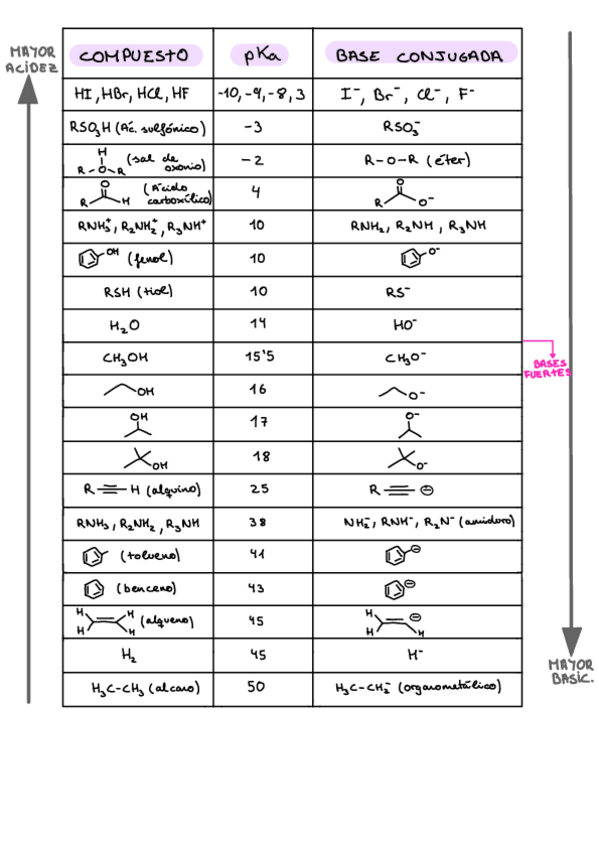 MAYOR ACIDEZ
COMPUESTO pKa BASE CONJUGADA
HI, HBr, HCl, HF -10, -9, -8, 3 I⁻, Br⁻, Cl⁻, F⁻
RSO₃H (Ác. sulfónico) -3 RSO₃⁻
H R-O-R (sal de oxonio) -2 R-O-R (éter)
O R H (Ácido carboxílico) 4 O R O⁻
RNH₃⁺, R₂NH₂⁺, R₃NH⁺ 10 RNH₂, R₂NH, R₃NH
OH (fenol) 10 O⁻
RSH (tiol) 10 RS⁻
H₂O 14 HO⁻
CH₃OH 15'5 CH₃O⁻
BASES FUERTES
OH 16 O⁻
OH 17 O⁻
OH 18 O⁻
R≡H (alquino) 25 R≡⊖
RNH₃, R₂NH₂, R₃NH 38 NH₂⁻, RNH⁻, R₂N⁻ (amiduro)
(tolueno) 41 ⊖
(benceno) 43 ⊖
H H H H (alqueno) 45 H H H ⊖
H₂ 45 H⁻
H₃C-CH₃ (alcano) 50 H₃C-CH₂⁻ (organometálico)
MAYOR BASIC.